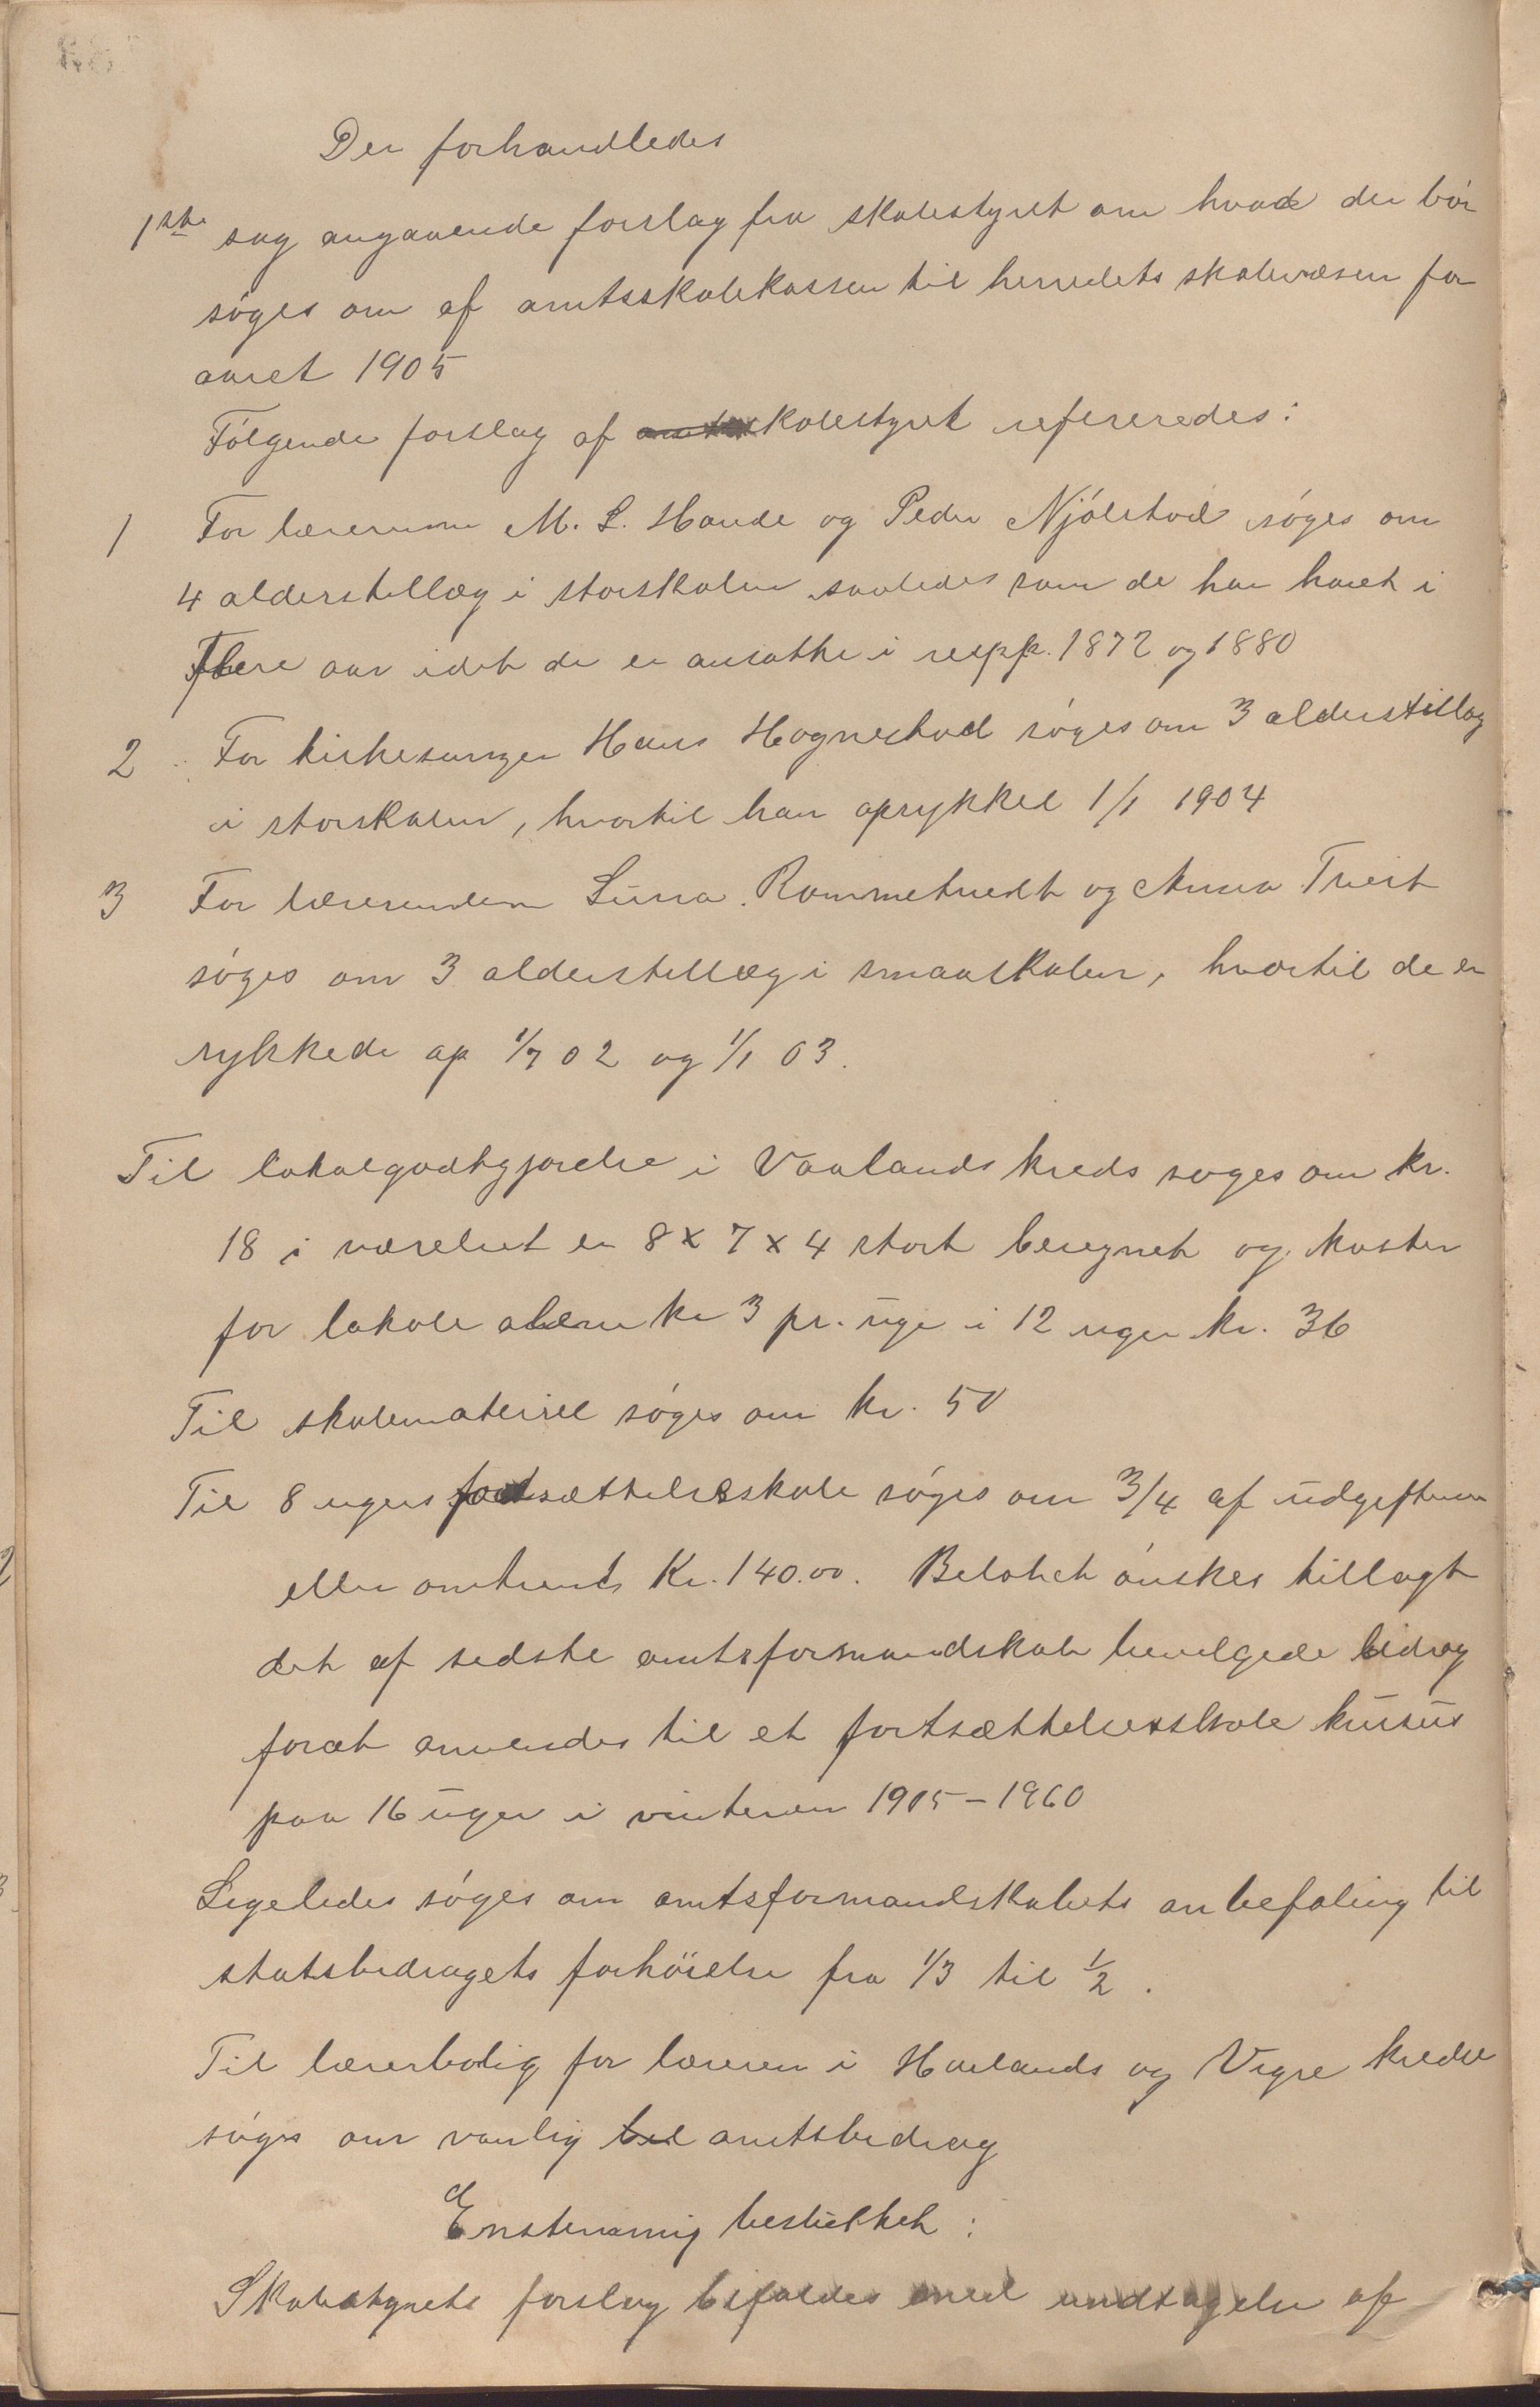 Der forhandledes
1ste sag angaaende forslag fra skolestyret om hvad der bør
søges om af amtsskolekassen til herredets skolevæsen for
aaret 1905
Følgende forslag af skolestyret refereredes:
1 For lærerne M. L. Haude og Peder Njólstad søges om
4 alderstillæg i storskolen saaledes som de har havt i
flere aar idet de er ansatte i resp. 1872 og 1880
2 For kirkesanger Hans Hognestad søges om 3 alderstillæg
i storskolen, hvortil han oprykket 1/1 1904
3 For lærerinderne Lina Rommetvedt og Anna Tveit
søges om 3 alderstillæg i smaaskolen, hvortil de er
rykkede op 1/7 02 og 1/1 03.
Til lokalgodtgjørelse i Vaalands kreds søges om kr.
18 i værelset er 8 x 7 x 4 stort beregnet og koster
for lokale alene kr 3 pr. uge i 12 uger kr. 36
Til skolemateriel søges om kr. 50
Til 8 ugers fortsættelsesskole søges om 3/4 af udgifterne
eller omtrent Kr. 140.00. Beløbet ønskes tillagt
det af sidste amtsformandskab bevilgede bidrag
forat anvendes til et fortsættelsesskole kursus
paa 16 uger i vinteren 1905-1960
Ligeledes søges om amtsformandskabets anbefaling til
statsbidragets forhöielse fra 1/3 til 1/2.
Til lærerbolig for læreren i Havlands og Vigre kredse
søges om vanlig amtsbidrag
Enstemmig besluttet:
Skolestyrets forslag bifaldes med undtagelse af